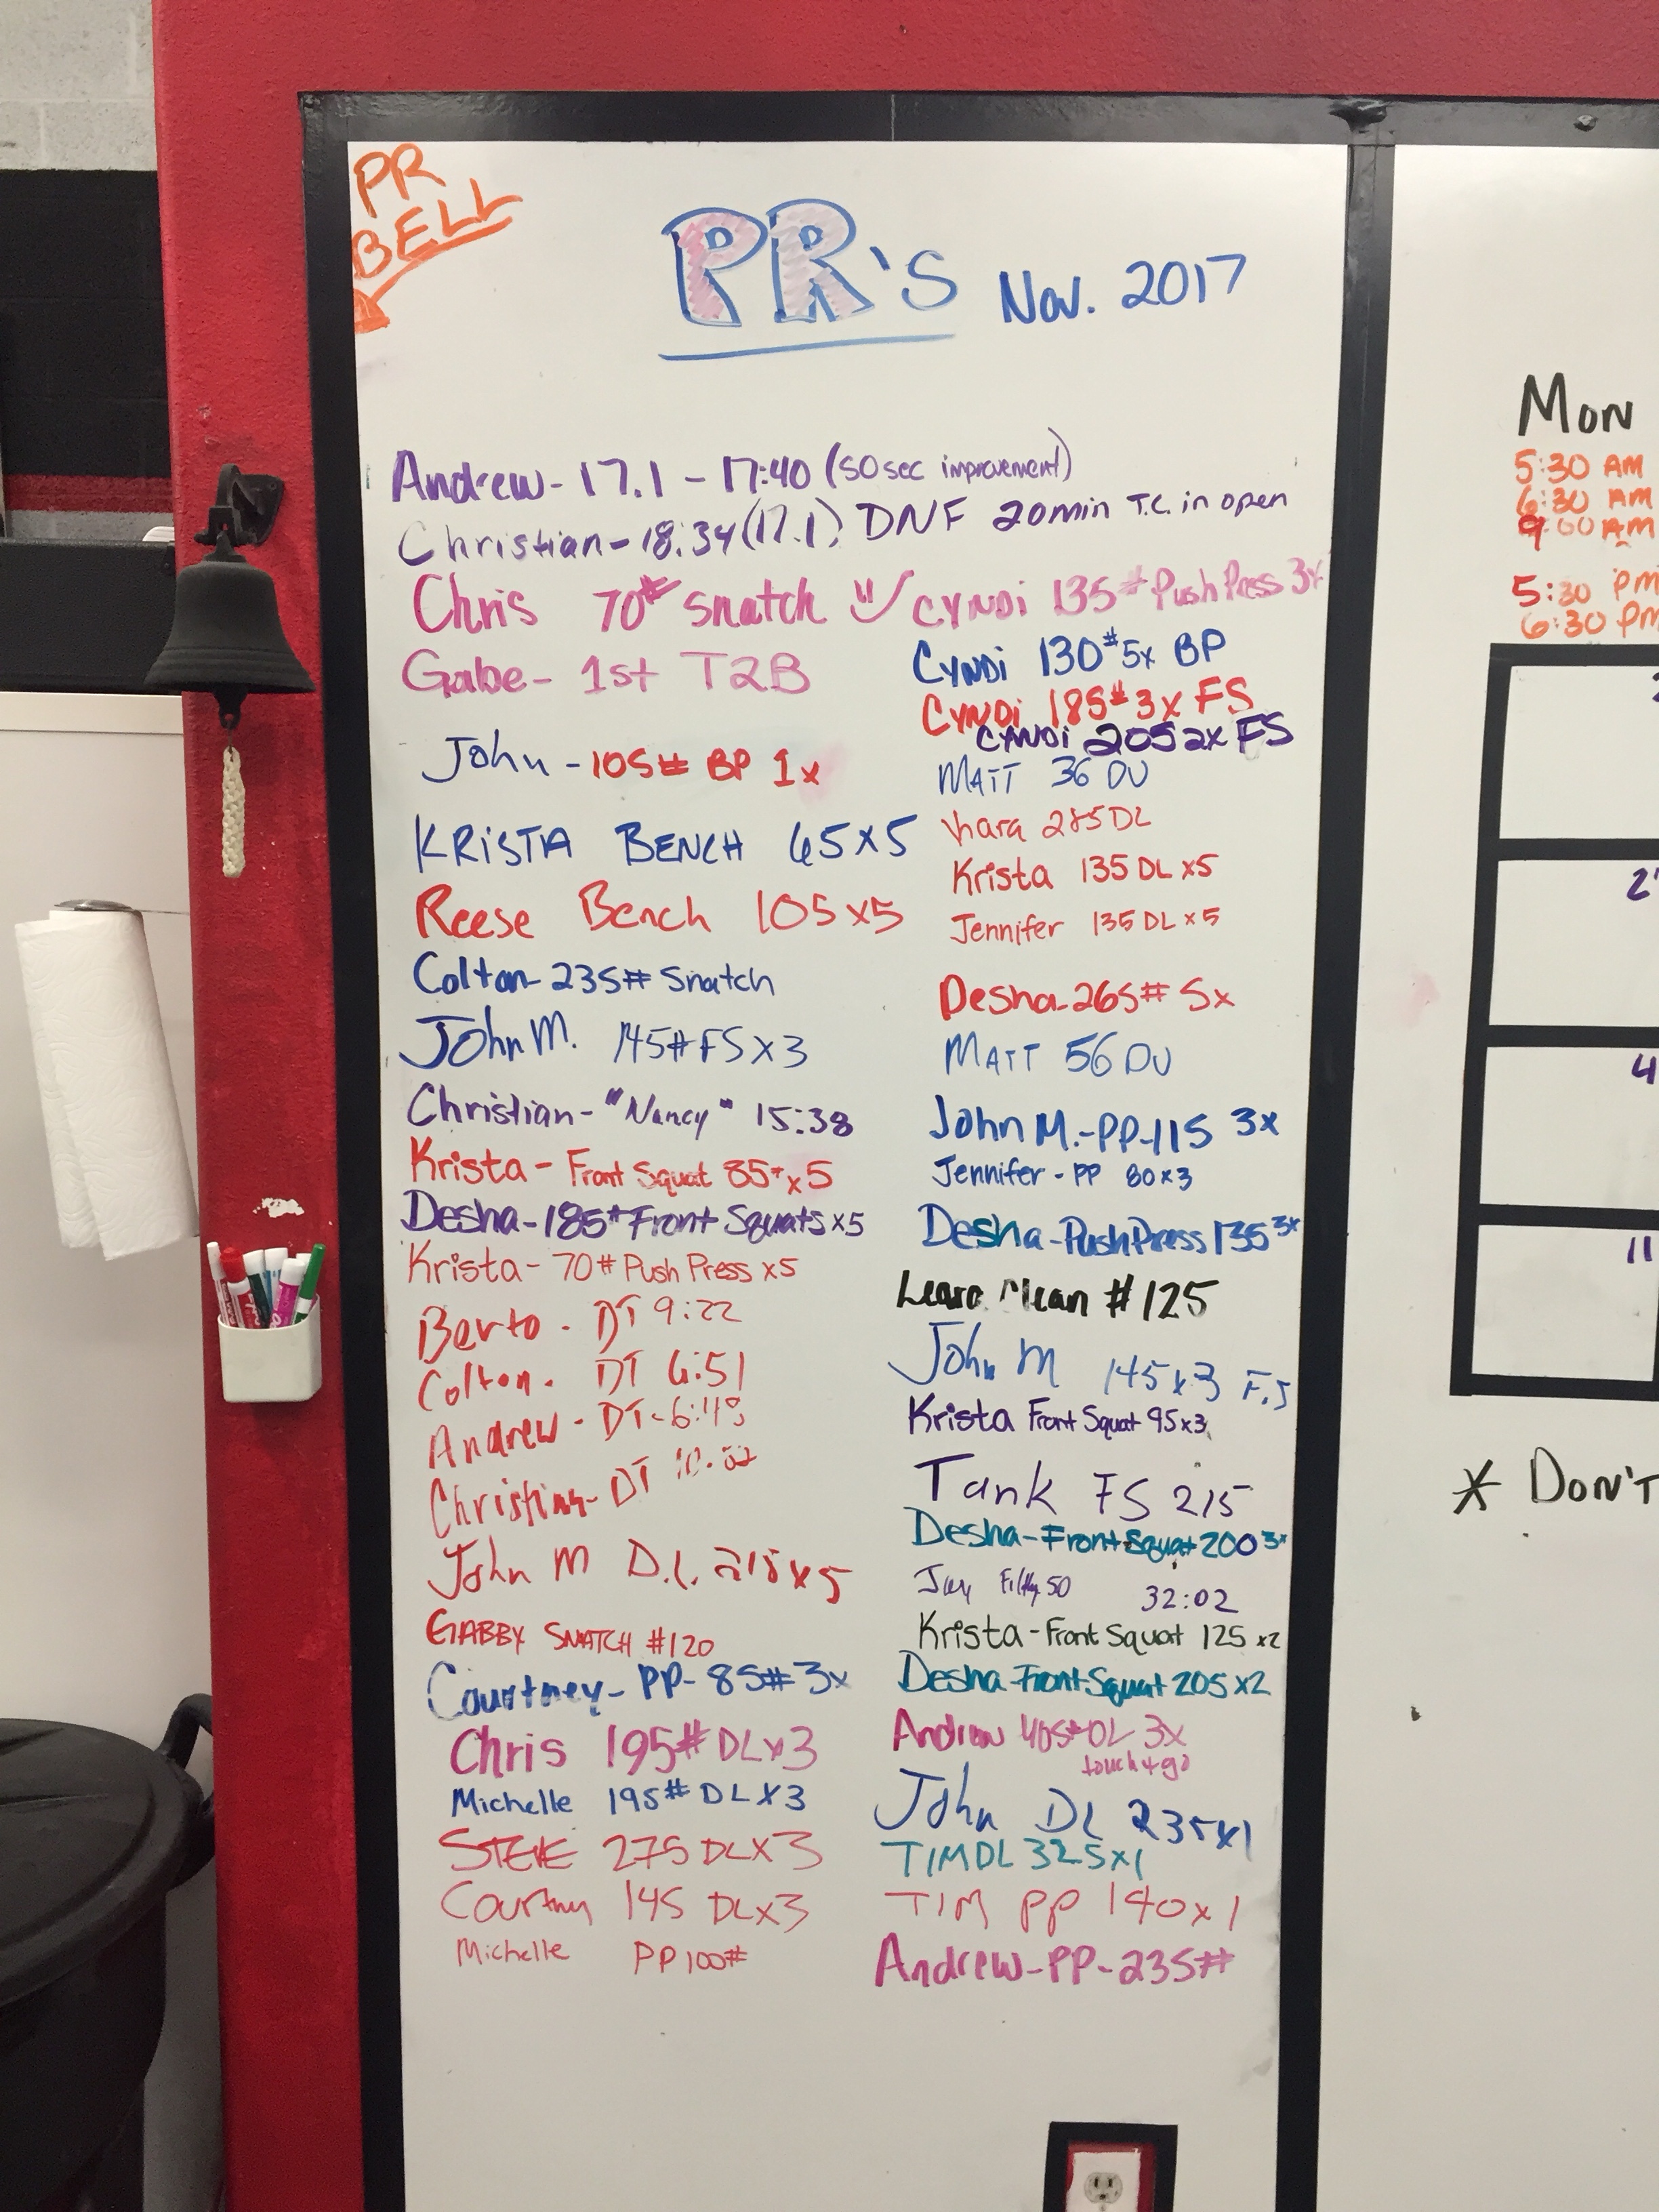 PR
BELL
PR's Nov. 2017
Andrew- 17.1 - 17:40 (50sec improvement)
Christian- 18:34 (17.1) DNF 20min T.C. in open
Chris 70# snatch
Gabe- 1st T2B
John - 105# BP 1x
KRISTIA BENCH 65x5
Reese Bench 105x5
Colton- 235# Snatch
John M. 145# FS x 3
Christian- "Nancy" 15:38
Krista - Front Squat 85# x5
Desha- 185# Front Squats x5
Krista- 70# Push Press x5
Berto - DT 9:22
Colton - DT 6:51
Andrew - DT-
Christian- DT
John M D.L. 215 x 5
GABBY SNATCH #120
Courtney- PP- 85# 3x
Chris 195# DL x 3
Michelle 195# DL x 3
STEVE 275 DL x 3
Courtney 145 DL x3
Michelle PP 100#
CYNDi 135# Push Press 3x
CYNDi 130# 5x BP
CYNDi 185# 3x FS
CYNDi 205 2x FS
MATT 36 DU
285 DL
Krista 135 DL x5
Jennifer 135 DL x 5
Desha- 265# 5x
MATT 56 DU
John M.-PP-115 3x
Jennifer - PP 80x3
Desha -Push Press 135 3x
Clean #125
John M 145x3 F.S
Krista Front Squat 95x3
Tank FS 215
Desha-Front Squat 200 3x
Filthy 50 32:02
Krista-Front Squat 125 x2
Desha-Front Squat 205 x2
Andrew 405# DL 3x
touch + go
John DL 235x1
TIM DL 325x1
TIM PP 140x1
Andrew-PP-235#
Mon
5:30 AM
6:30 AM
9:00 AM
5:30 PM
6:30 PM
4
11
* DON'T